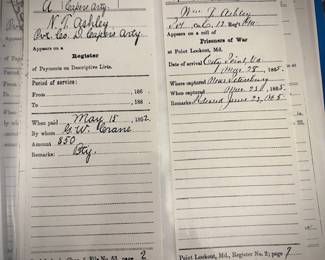 A Capers Arty
N. T. Ashley
Pvt. Co. D Capers Arty
Appears on a
Register
of Payments on Descriptive Lists.
Period of service:
From , 186
To , 186
When paid May 15, 1862
By whom G. W. Crane
Amount $50
Remarks: Bty
2
Wm T. Ashley
Appears on a roll of
Prisoners of War
at Point Lookout, Md.
Date of arrival City Point, Va
Mar 28, 1865.
Where captured Near Petersburg
When captured Mar 25, 1865.
Remarks: Released June 23, 1865
Point Lookout, Md., Register No. 2; page 7